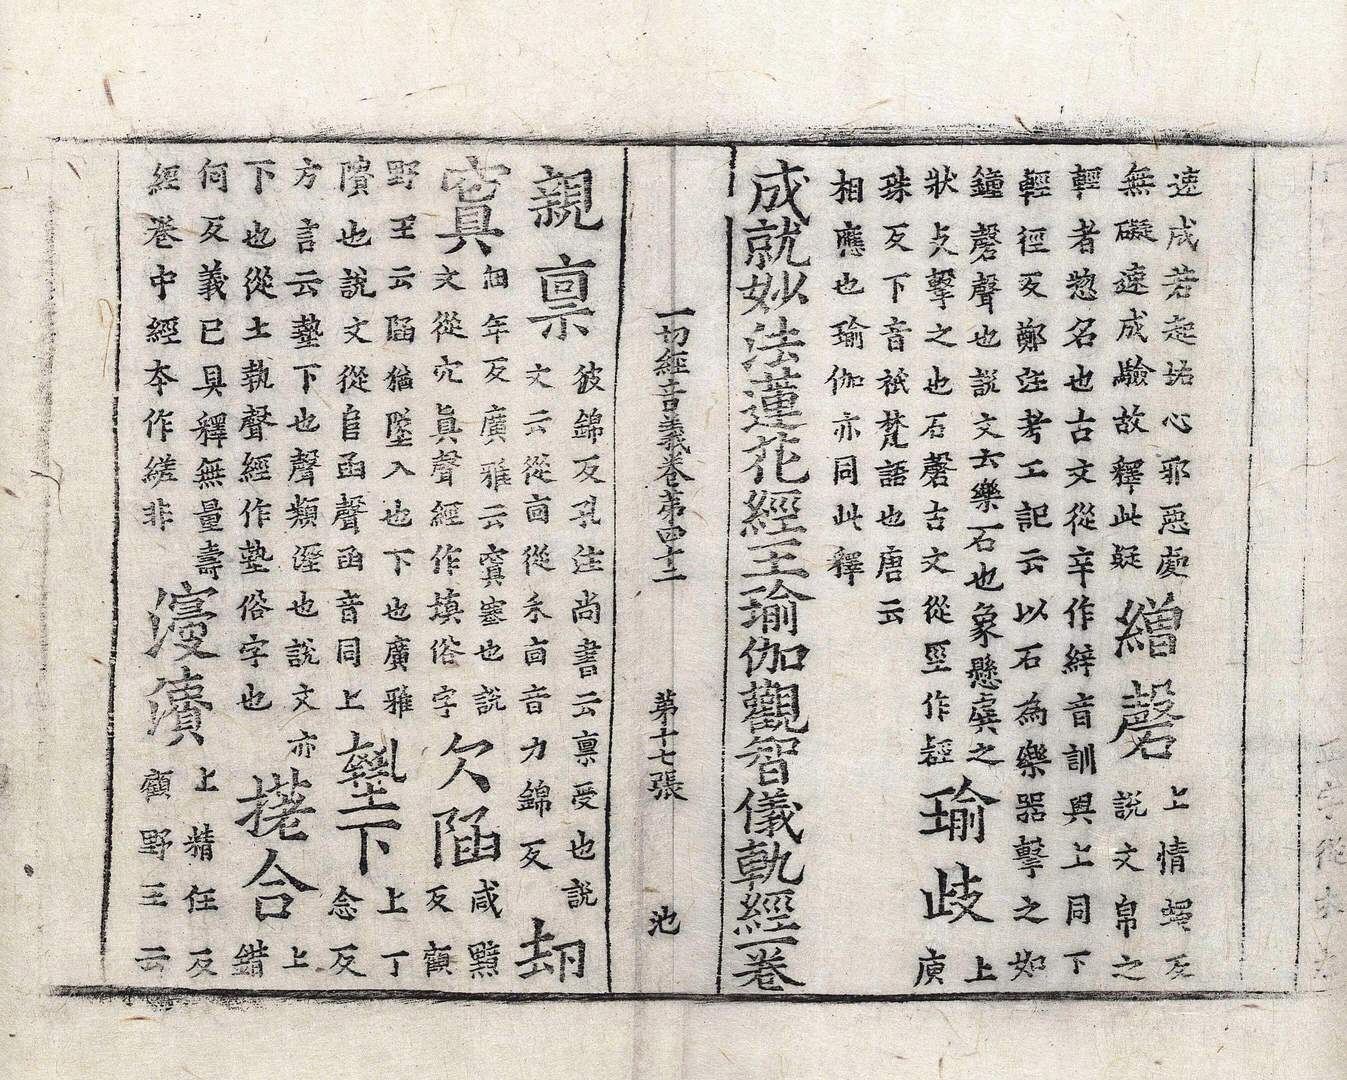 速成若起垢心邪惡處
無礙速成驗故釋此疑
繒磬
上情蠅反
說文帛之
輕者惣名也古文從辛作縡音訓與上同下
輕徑反鄭注考工記云以石為樂器擊之如
鐘磬聲也說文云樂石也象懸虡之
狀殳擊之也石磬古文從巠作硜
瑜歧
上
庾
珠反下音祇梵語也唐云
相應也瑜伽亦同此釋
成就妙法蓮花經王瑜伽觀智儀軌經一卷
一切經音義卷第四十二 第十七張 池
親禀
彼錦反孔注尚書云禀受也說
文云從㐭從禾㐭音力錦反
刧
窴
佃年反廣雅云窴塞也說
文從穴眞聲經作填俗字
欠陷
咸黯
反顧
野王云陷猶墜入也下也廣雅
隤也說文從𨸏臽聲臽音同上
墊下
上丁
念反
方言云墊下也聲類湮也說文亦
下也從土執聲經作塾俗字也
搓合
上
錯
何反義已具釋無量壽
經卷中經本作縒非
濅瀆
上精任反
顧野王云